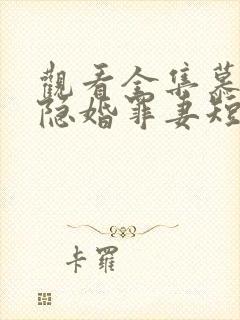 觀看全集慕
隐婚罪妻短
卡羅